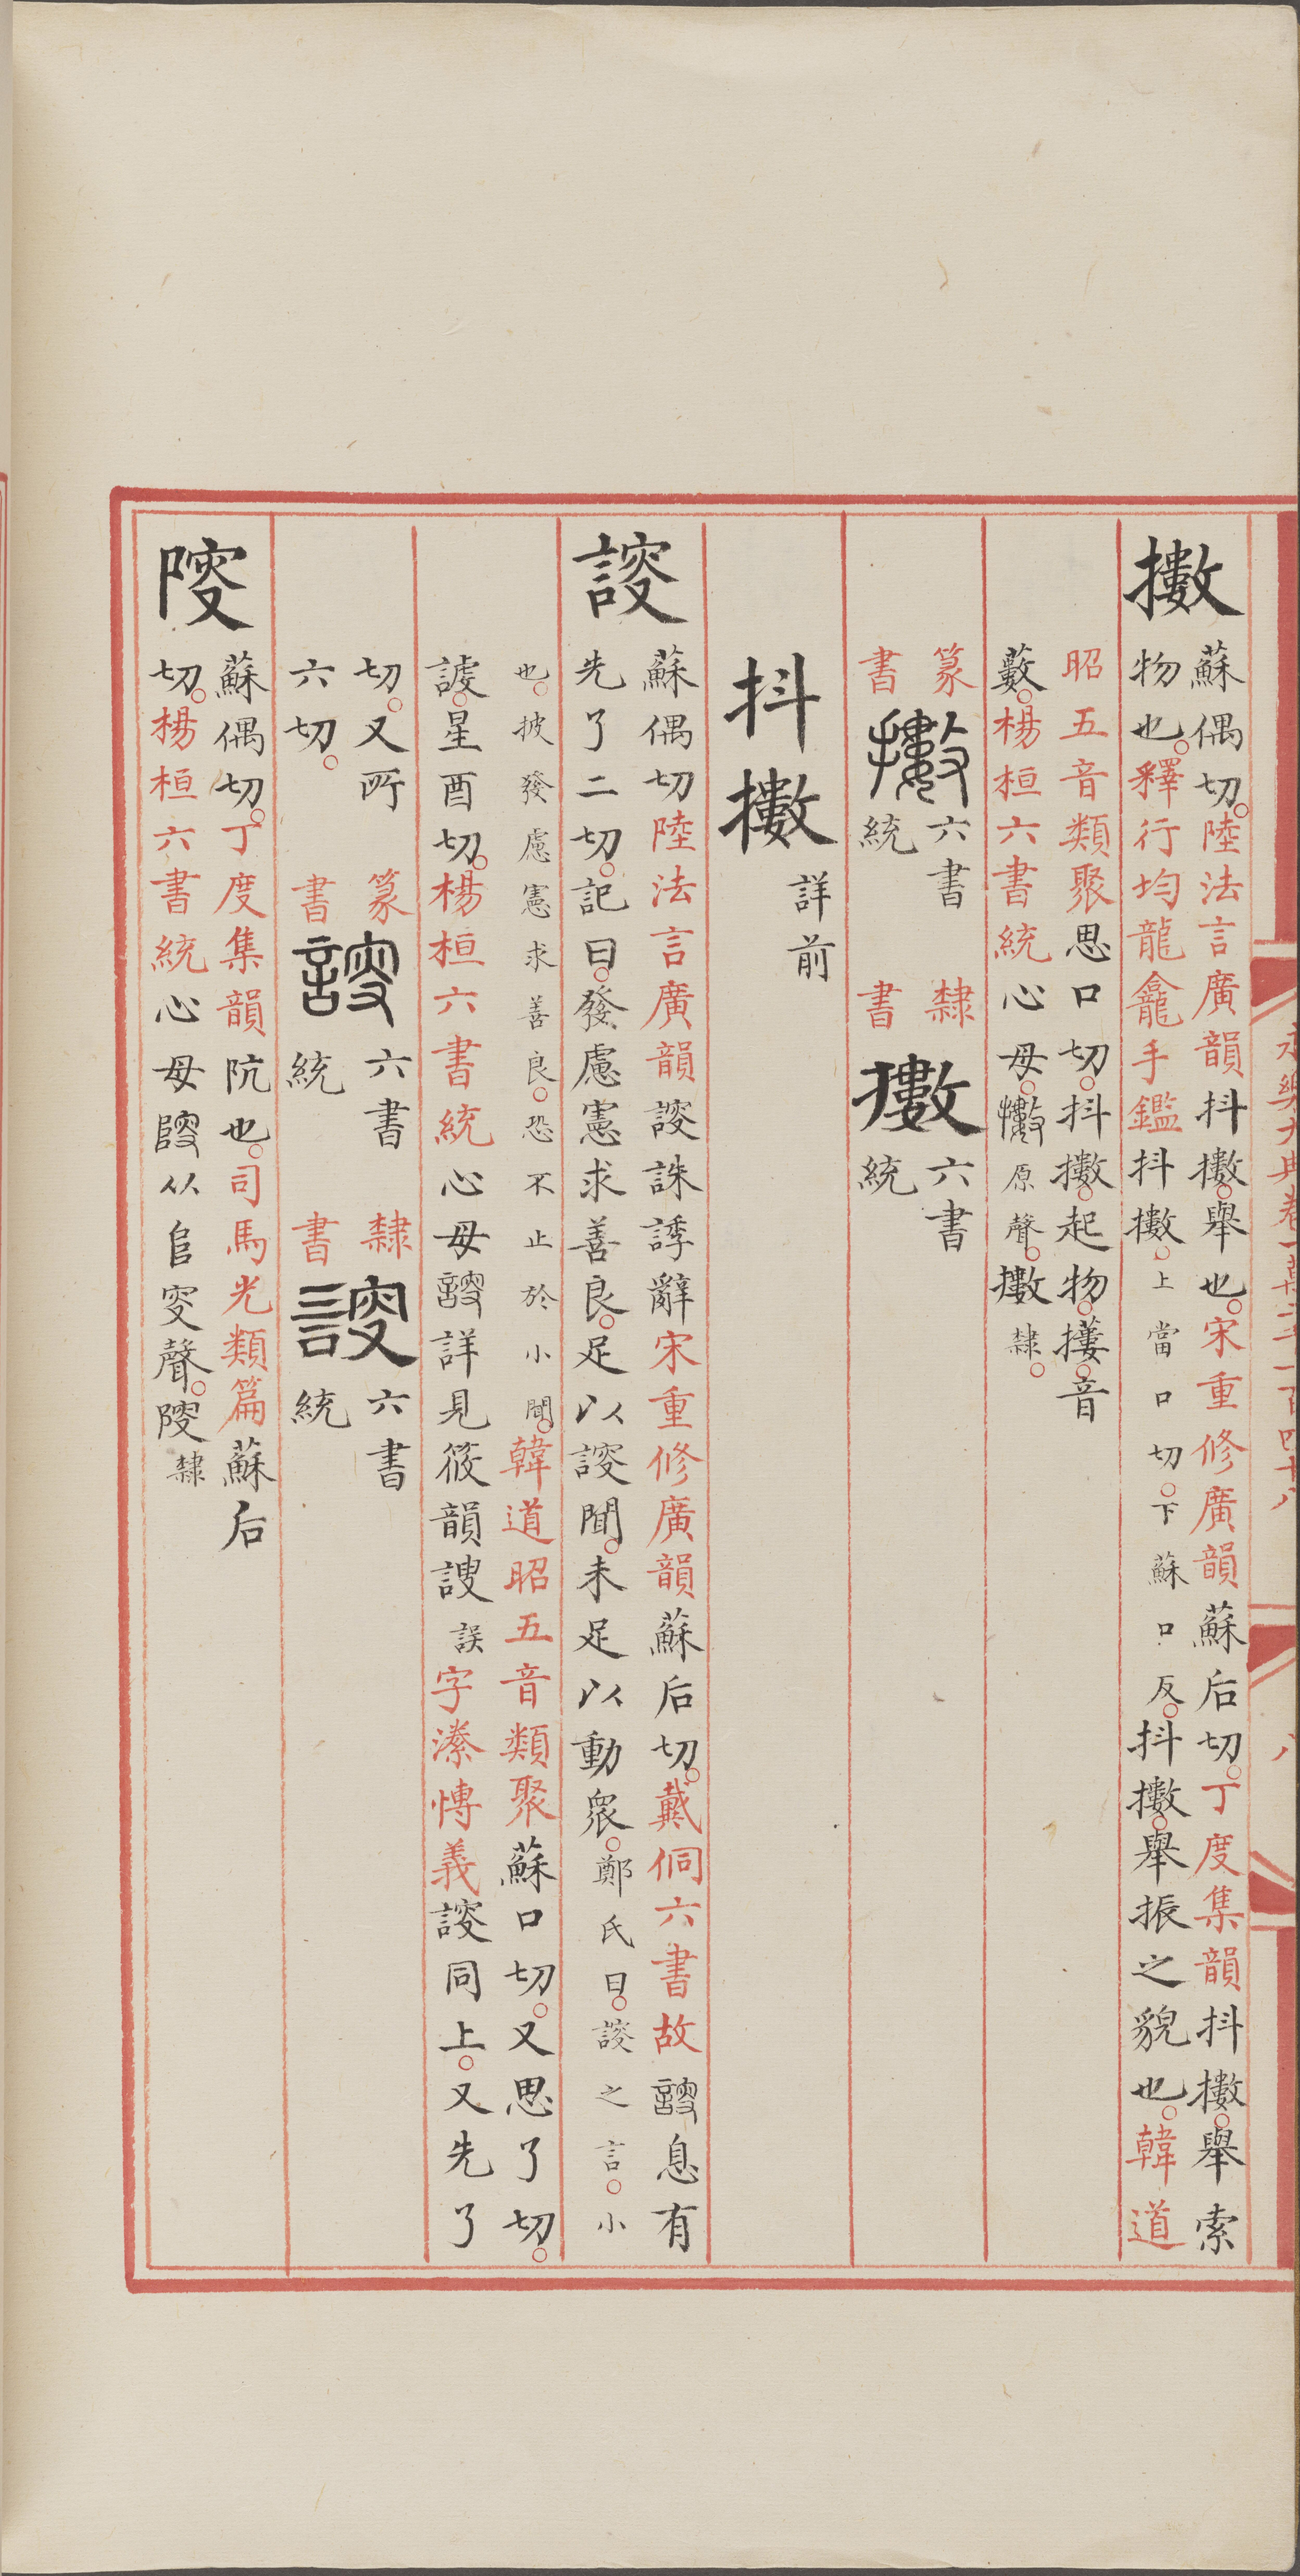 擻
蘇偶切陸法言廣韻抖擻舉也宋重修廣韻蘇后切丁度集韻抖擻舉索
物也釋行均龍龕手鑑抖擻上當口切下蘇口反抖擻舉振之貌也韓道
昭五音類聚思口切抖擻起物㩳音
藪楊桓六書統心母擻原聲擻隸
篆書擻六書統 隸書擻六書統
抖擻詳前
謏
蘇偶切陸法言廣韻謏誅誘辭宋重修廣韻蘇后切戴侗六書故謏息有
先了二切記曰發慮憲求善良足以謏聞未足以動衆鄭氏曰謏之言小
也披發慮憲求善良恐不止於小聞韓道昭五音類聚蘇口切又思了切
謼星酉切楊桓六書統心母謏詳見筱韻謏誤字潫慱義謏同上又先了
切又所
六切
篆書謏六書統 隸書謏六書統
䧹
蘇偶切丁度集韻阬也司馬光類篇蘇后
切楊桓六書統心母从𨸏叜聲隸
永樂大典卷一萬二千一百四十八
八